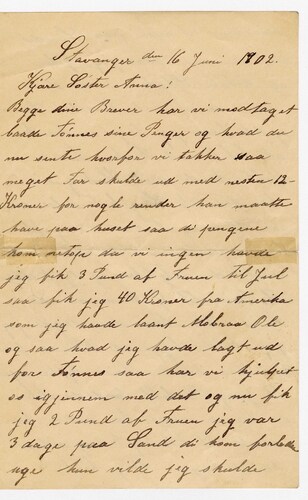 Stavanger den 16 Juni 1902.
Kjære Søster Anna!
Begge dine Brever har vi modtaget
baade Tønnes sine Penger og hvad du
nu sente hvorfor vi takker saa
meget Far skulde ud med nesten 12-
Kroner for nogle render han maatte
have paa huset saa di pengene
kom netop da vi ingen havde
jeg fik 3 Pund af Fruen til Jul
saa fik jeg 40 Kroner fra Amerika
som jeg havde laant Mobraa Ole
og saa hvad jeg havde lagt ud
for Tønnes saa har vi hjulpet
os igjinnem med det og nu fik
jeg 2 Pund af Fruen jeg var
3 dage paa Sand di kom forlede
uge hun vilde jeg skulde